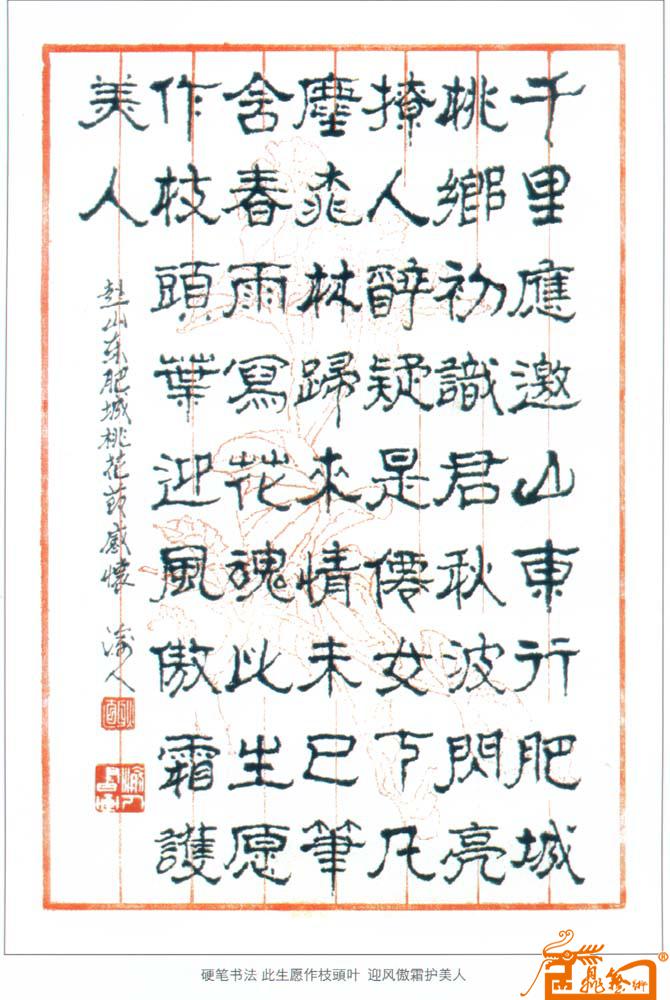 千里應邀山東行肥城
桃鄉初識君秋波閃亮
撩人醉疑是僊女下凡
塵桃林歸來情未已筆
含春雨寫花魂此生愿
作枝頭葉迎風傲霜護
美人
赴山东肥城桃花节感懷 渝人
硬笔书法 此生愿作枝頭叶 迎风傲霜护美人